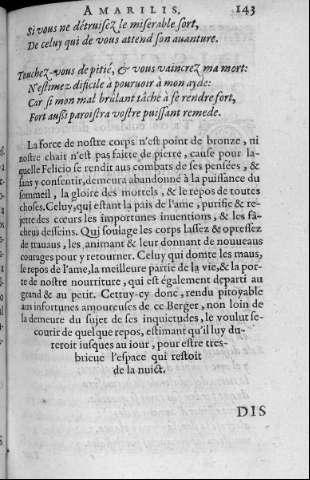 AMARILIS. 143
Si vous ne détruisez le miserable sort,
De celuy qui de vous attend son auanture.
Touchez-vous de pitié, & vous vaincrez ma mort:
N'estimez dificile à pouruoir à mon ayde:
Car si mon mal brûlant tâche à se rendre fort,
Fort aussi paroistra vostre puissant remede.
La force de nostre corps n'est point de bronze, ni
nostre chair n'est pas faitte de pierre, cause pour la-
quelle Felicio se rendit aux combats de ses pensées, &
sans y consentir, demeura abandonné à la puissance du
sommeil, la gloire des mortels, & le repos de toutes
choses. Celuy, qui estant la pais de l'ame, purifie & re-
jette des cœurs les importunes inuentions, & les fâ-
cheus desseins. Qui soulage les corps lassez & opressez
de trauaus, les animant & leur donnant de nouueaus
courages pour y retourner. Celuy qui domte les maus,
le repos de l'ame, la meilleure partie de la vie, & la por-
te de nostre nourriture, qui est également departi au
grand & au petit. Cettuy-cy donc, rendu pitoyable
aus infortunes amoureuses de ce Berger, non loin de
la demeure du sujet de ses inquietudes, le voulut se-
courir de quelque repos, estimant qu'il luy du-
reroit iusques au iour, pour estre tres-
brieue l'espace qui restoit
de la nuict.
DIS